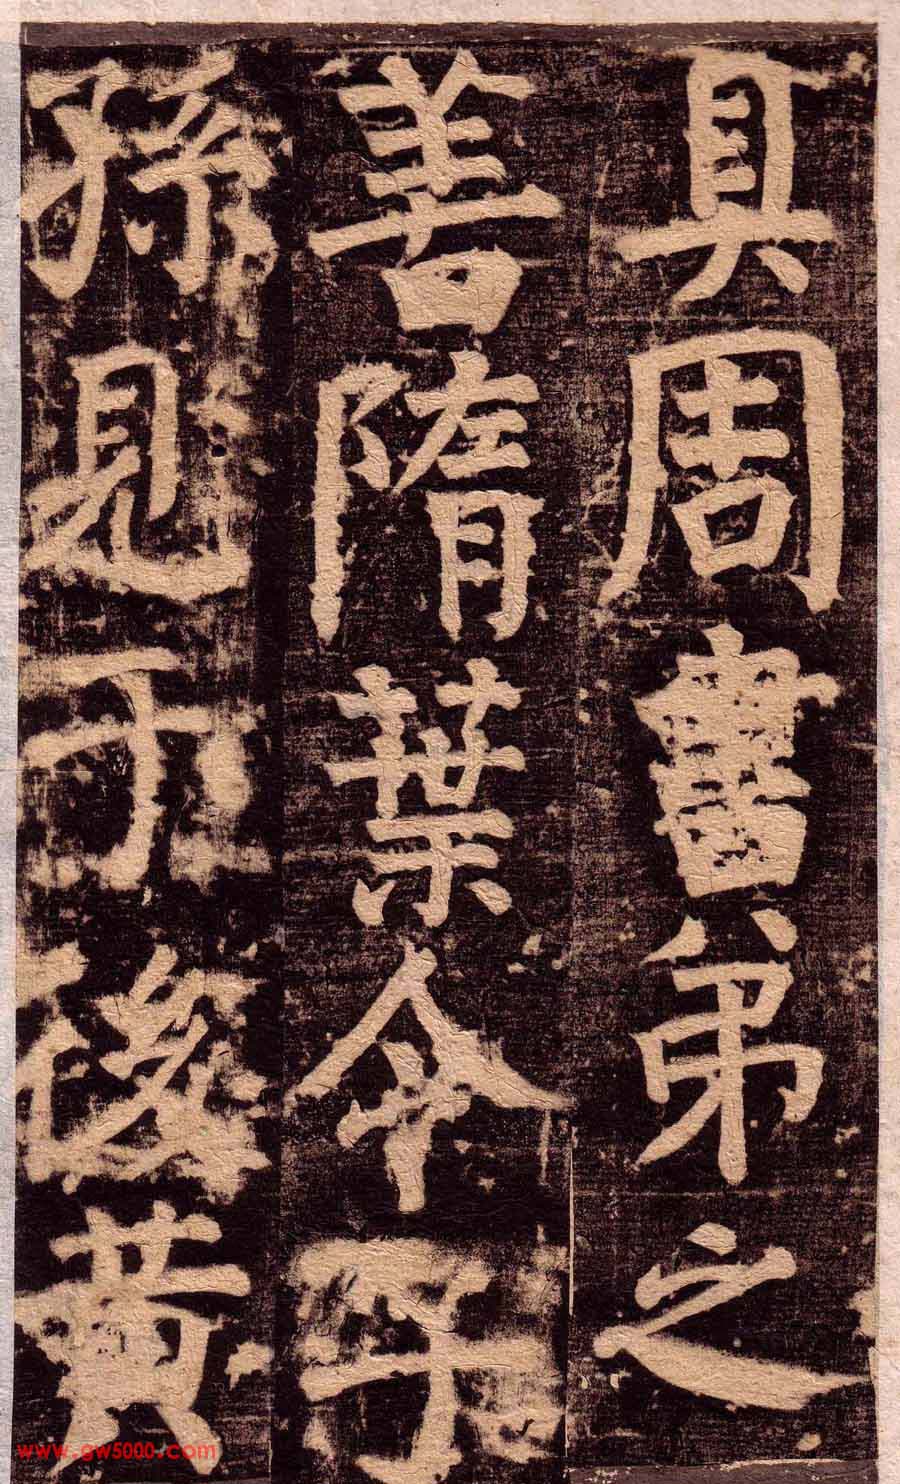 具周書弟之
善隋葉令子
孫見于後黃
www.gw5000.com